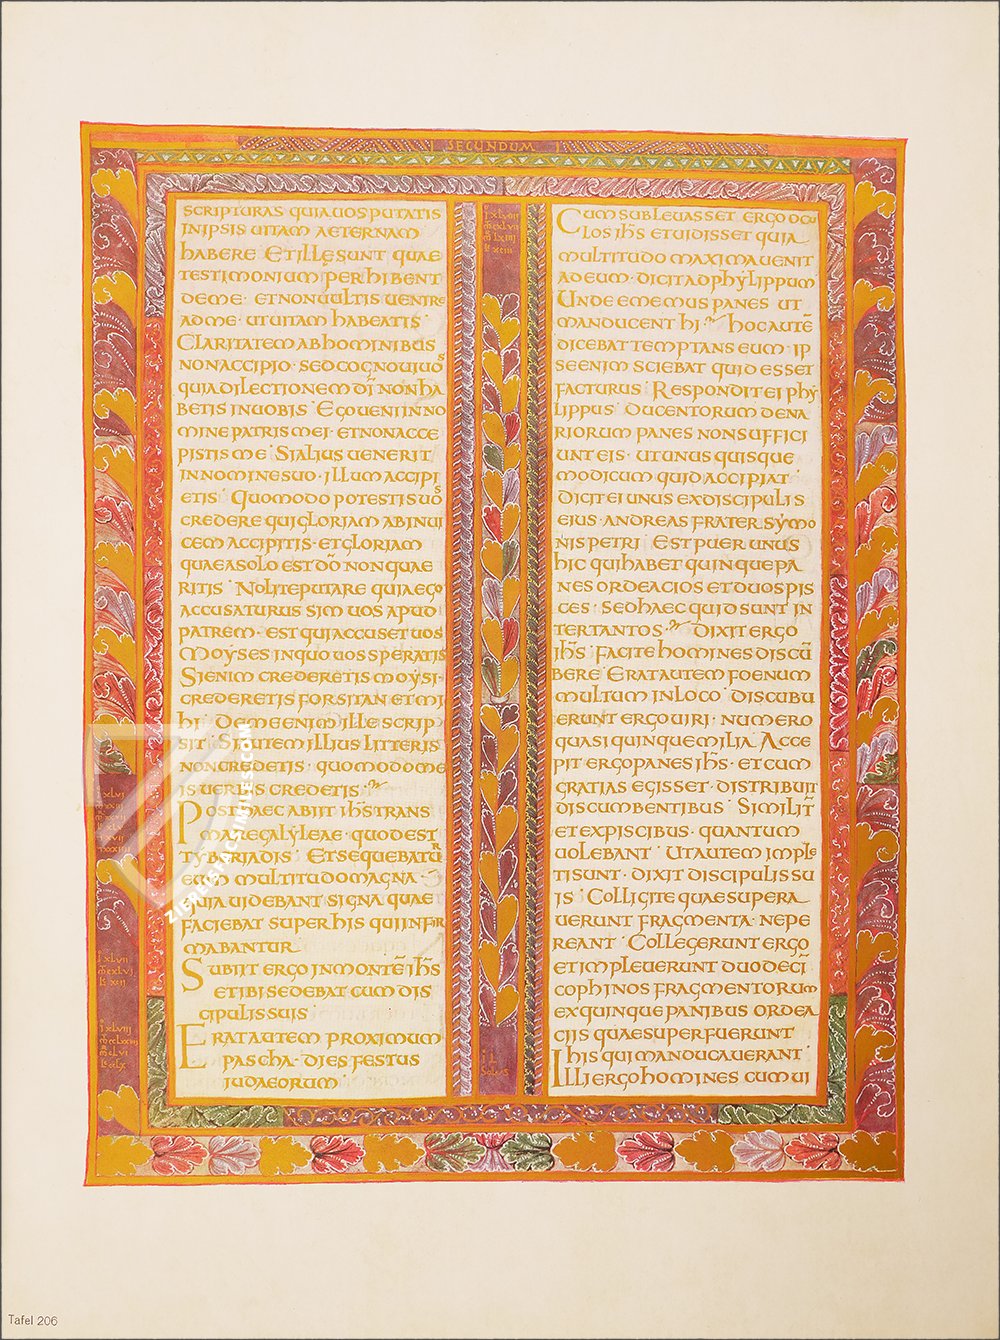 SECUNDUM
SCRIPTURAS QUIA UOS PUTATIS
IN IPSIS UITAM AETERNAM
HABERE ET ILLE SUNT QUAE
TESTIMONIUM PERHIBENT
DE ME · ET NON UULTIS UENIRE
AD ME · UT UITAM HABEATIS ·
CLARITATEM AB HOMINIBUS
NON ACCIPIO · SED COGNOUI UOS
QUIA DILECTIONEM DĪ NON HA
BETIS IN UOBIS · EGO UENI IN NO
MINE PATRIS MEI · ET NON ACCE
PISTIS ME · SI ALIUS UENERIT
IN NOMINE SUO · ILLUM ACCIPI
ETIS · QUOMODO POTESTIS UOS
CREDERE QUI GLORIAM AB INUI
CEM ACCIPITIS · ET GLORIAM
QUAE A SOLO EST DŌ NON QUAE
RITIS · NOLITE PUTARE QUIA EGO
ACCUSATURUS SIM UOS APUD
PATREM · EST QUI ACCUSET UOS
MOYSES IN QUO UOS SPERATIS
SI ENIM CREDERETIS MOYSI ·
CREDERETIS FORSITAN ET MI
HI · DE ME ENIM ILLE SCRIP
SIT · SI AUTEM ILLIUS LITTERIS
NON CREDETIS · QUOMODO ME
IS UERBIS CREDETIS ·
POST HAEC ABIIT IH̄S TRANS
MARE GALYLEAE · QUOD EST
TYBERIADIS · ET SEQUEBATUR
EUM MULTITUDO MAGNA ·
QUIA UIDEBANT SIGNA QUAE
FACIEBAT SUPER HIS QUI INFIR
MABANTUR
SUBIIT ERGO IN MONTĒ IH̄S
ET IBI SEDEBAT CUM DIS
CIPULIS SUIS
ERAT AUTEM PROXIMUM
PASCHA · DIES FESTUS
IUDAEORUM
CUM SUBLEUASSET ERGO OCU
LOS IH̄S ET UIDISSET QUIA
MULTITUDO MAXIMA UENIT
AD EUM · DICIT AD PHYLIPPUM
UNDE EMEMUS PANES UT
MANDUCENT HI · HOC AUTĒ
DICEBAT TEMPTANS EUM · IP
SE ENIM SCIEBAT QUID ESSET
FACTURUS · RESPONDIT EI PHY
LIPPUS · DUCENTORUM DENA
RIORUM PANES NON SUFFICI
UNT EIS · UT UNUS QUISQUE
MODICUM QUID ACCIPIAT ·
DICIT EI UNUS EX DISCIPULIS
EIUS · ANDREAS FRATER SYMO
NIS PETRI · EST PUER UNUS
HIC QUI HABET QUINQUE PA
NES ORDEACIOS ET DUOS PIS
CES · SED HAEC QUID SUNT IN
TER TANTOS · DIXIT ERGO
IH̄S · FACITE HOMINES DISCŪ
BERE · ERAT AUTEM FOENUM
MULTUM IN LOCO · DISCUBU
ERUNT ERGO UIRI · NUMERO
QUASI QUINQUE MILIA · ACCE
PIT ERGO PANES IH̄S · ET CUM
GRATIAS EGISSET · DISTRIBUIT
DISCUMBENTIBUS · SIMILIT̄
ET EX PISCIBUS · QUANTUM
UOLEBANT · UT AUTEM IMPLE
TI SUNT · DIXIT DISCIPULIS SU
IS · COLLIGITE QUAE SUPERA
UERUNT FRAGMENTA · NE PE
REANT · COLLEGERUNT ERGO
ET IMPLEUERUNT DUODECI
COPHINOS FRAGMENTORUM
EX QUINQUE PANIBUS ORDEA
CIIS QUAE SUPERFUERUNT
HIS QUI MANDUCAUERANT ·
ILLI ERGO HOMINES CUM UI
ZIEREIS FACSIMILES.COM
Tafel 206